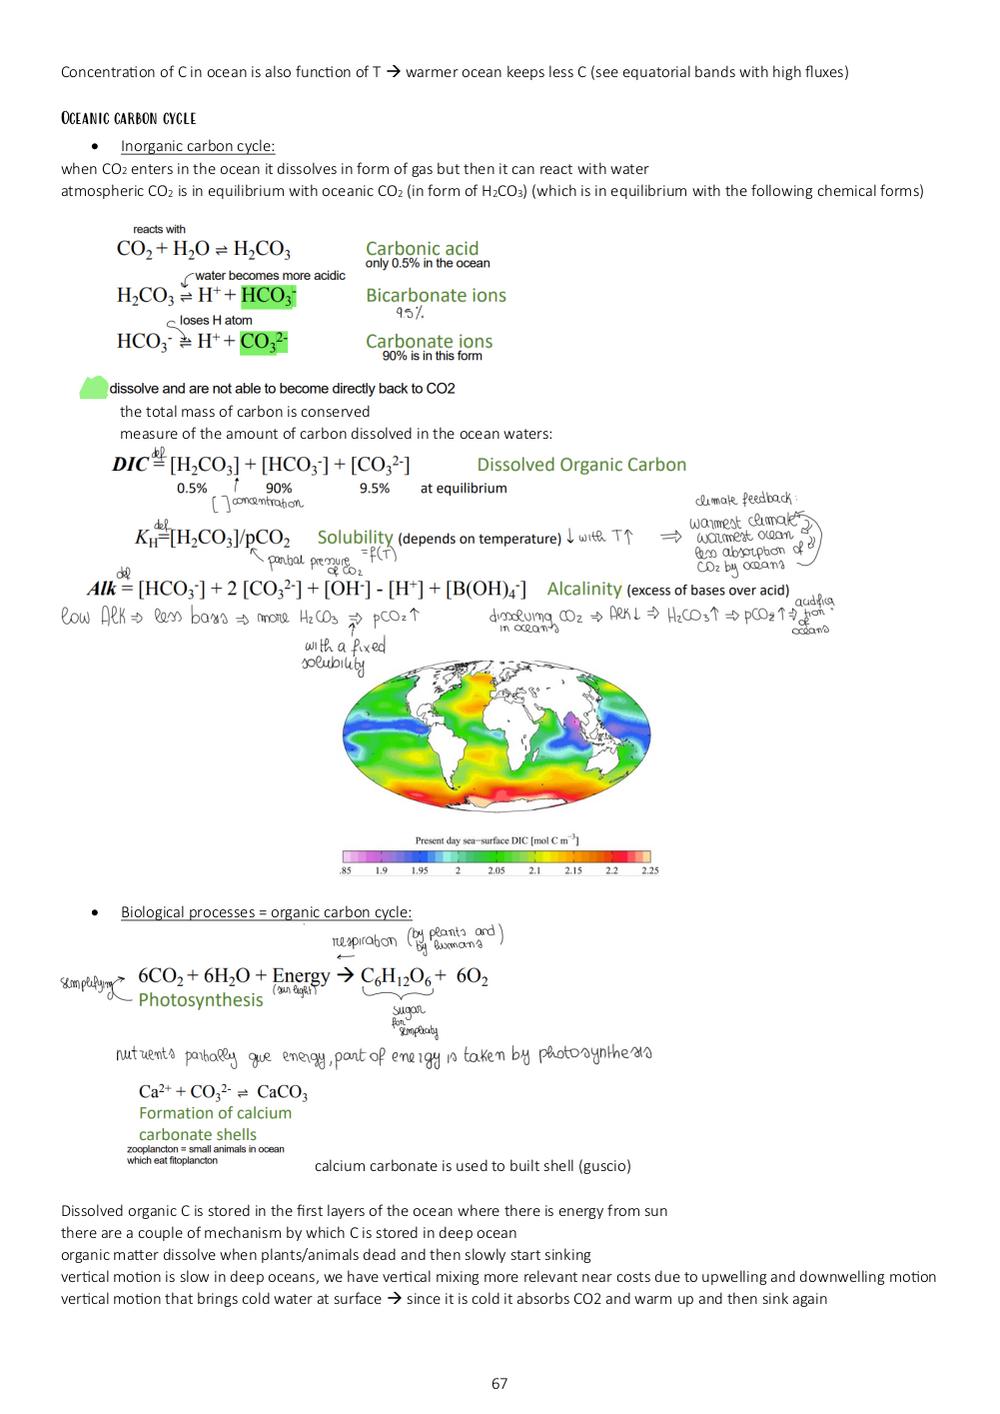 Concentration of C in ocean is also function of T → warmer ocean keeps less C (see equatorial bands with high fluxes)
OCEANIC CARBON CYCLE
• Inorganic carbon cycle:
when CO₂ enters in the ocean it dissolves in form of gas but then it can react with water
atmospheric CO₂ is in equilibrium with oceanic CO₂ (in form of H₂CO₃) (which is in equilibrium with the following chemical forms)
reacts with
CO₂ + H₂O ⇌ H₂CO₃ Carbonic acid
only 0.5% in the ocean
water becomes more acidic
H₂CO₃ ⇌ H⁺ + HCO₃⁻ Bicarbonate ions
95%
loses H atom
HCO₃⁻ ⇌ H⁺ + CO₃²⁻ Carbonate ions
90% is in this form
dissolve and are not able to become directly back to CO2
the total mass of carbon is conserved
measure of the amount of carbon dissolved in the ocean waters:
def
DIC = [H₂CO₃] + [HCO₃⁻] + [CO₃²⁻] Dissolved Organic Carbon
0.5% ↑ 90% 9.5% at equilibrium
[ ] concentration
climate feedback:
warmest climate
warmest ocean
less absorption of
CO₂ by oceans
def
K_H=[H₂CO₃]/pCO₂ Solubility (depends on temperature) ↓ with T↑ ⇒
=f(T)
partial pressure
of CO₂
def
Alk = [HCO₃⁻] + 2 [CO₃²⁻] + [OH⁻] - [H⁺] + [B(OH)₄⁻] Alcalinity (excess of bases over acid)
low Alk ⇒ less bases ⇒ more H₂CO₃ ⇒ pCO₂ ↑
dissolving CO₂ ⇒ Alk↓ ⇒ H₂CO₃↑ ⇒ pCO₂↑ ⇒ acidification of oceans
in oceans
with a fixed
solubility
Present day sea-surface DIC [mol C m⁻³]
.85 1.9 1.95 2 2.05 2.1 2.15 2.2 2.25
• Biological processes = organic carbon cycle:
respiration (by plants and)
by humans
←
simplifying 6CO₂ + 6H₂O + Energy → C₆H₁₂O₆ + 6O₂
(sun light)
Photosynthesis
sugar
for
simplicity
nutrients partially give energy, part of energy is taken by photosynthesis
Ca²⁺ + CO₃²⁻ ⇌ CaCO₃
Formation of calcium
carbonate shells
zooplancton = small animals in ocean
which eat fitoplancton
calcium carbonate is used to built shell (guscio)
Dissolved organic C is stored in the first layers of the ocean where there is energy from sun
there are a couple of mechanism by which C is stored in deep ocean
organic matter dissolve when plants/animals dead and then slowly start sinking
vertical motion is slow in deep oceans, we have vertical mixing more relevant near costs due to upwelling and downwelling motion
vertical motion that brings cold water at surface → since it is cold it absorbs CO2 and warm up and then sink again
67